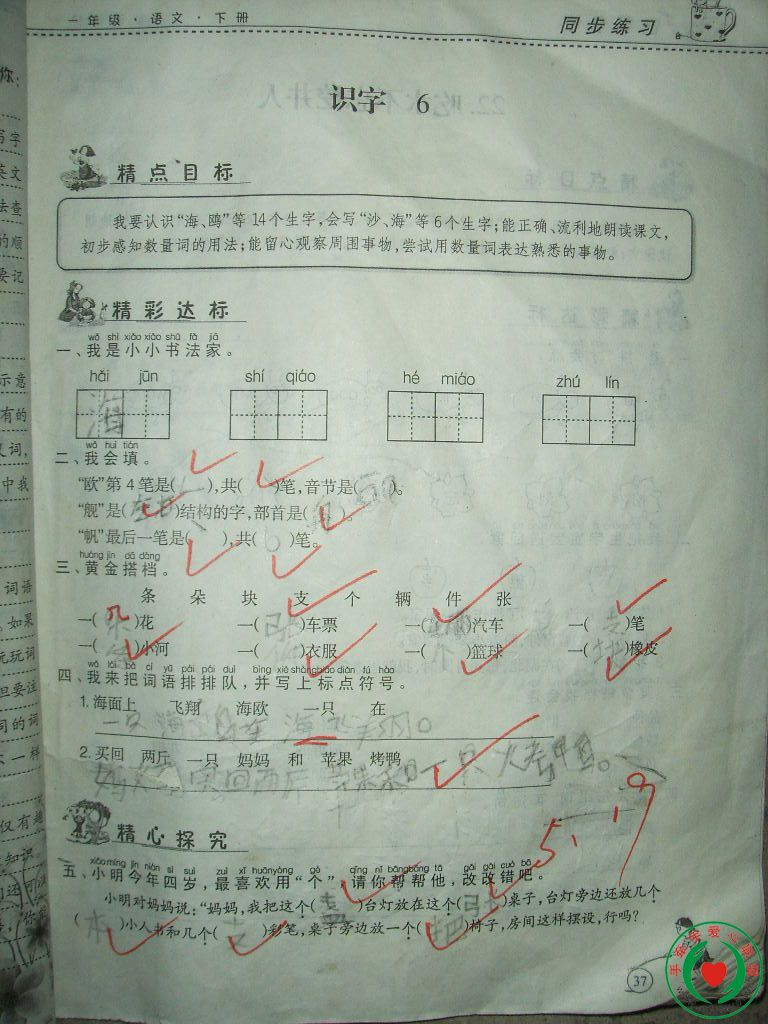 一年级·语文·下册
同步练习
识字 6
精点目标
我要认识“海、鸥”等14个生字,会写“沙、海”等6个生字;能正确、流利地朗读课文,
初步感知数量词的用法;能留心观察周围事物,尝试用数量词表达熟悉的事物。
精彩达标
wǒ shì xiǎo xiǎo shū fǎ jiā
一、我是小小书法家。
hǎi jūn shí qiáo hé miáo zhú lín
海
wǒ huì tián
二、我会填。
“欧”第4笔是( ),共( )笔,音节是( )。
“舰”是(左右)结构的字,部首是( )。
“帆”最后一笔是( ),共( )笔。
huáng jīn dā dàng
三、黄金搭档。
条 朵 块 支 个 辆 件 张
一(朵)花 一(张)车票 一(辆)汽车 一(支)笔
一(条)小河 一(件)衣服 一(个)篮球 一(块)橡皮
wǒ lái bǎ cí yǔ pái pái duì bìng xiě shàng biāo diǎn fú hào
四、我来把词语排排队,并写上标点符号。
1.海面上 飞翔 海欧 一只 在
一只海
2.买回 两斤 一只 妈妈 和 苹果 烤鸭
妈妈买回两斤苹果和一只烤鸭。
5.19
精心探究
xiǎo míng jīn nián sì suì zuì xǐ huān yòng gè qǐng nǐ bāng bāng tā gǎi gǎi cuò ba
五、小明今年四岁,最喜欢用“个”,请你帮帮他,改改错吧。
小明对妈妈说:“妈妈,我把这个(盏)台灯放在这个( )桌子,台灯旁边还放几个
(本)小人书和几个(支)彩笔,桌子旁边放一个(把)椅子,房间这样摆设,行吗?
37